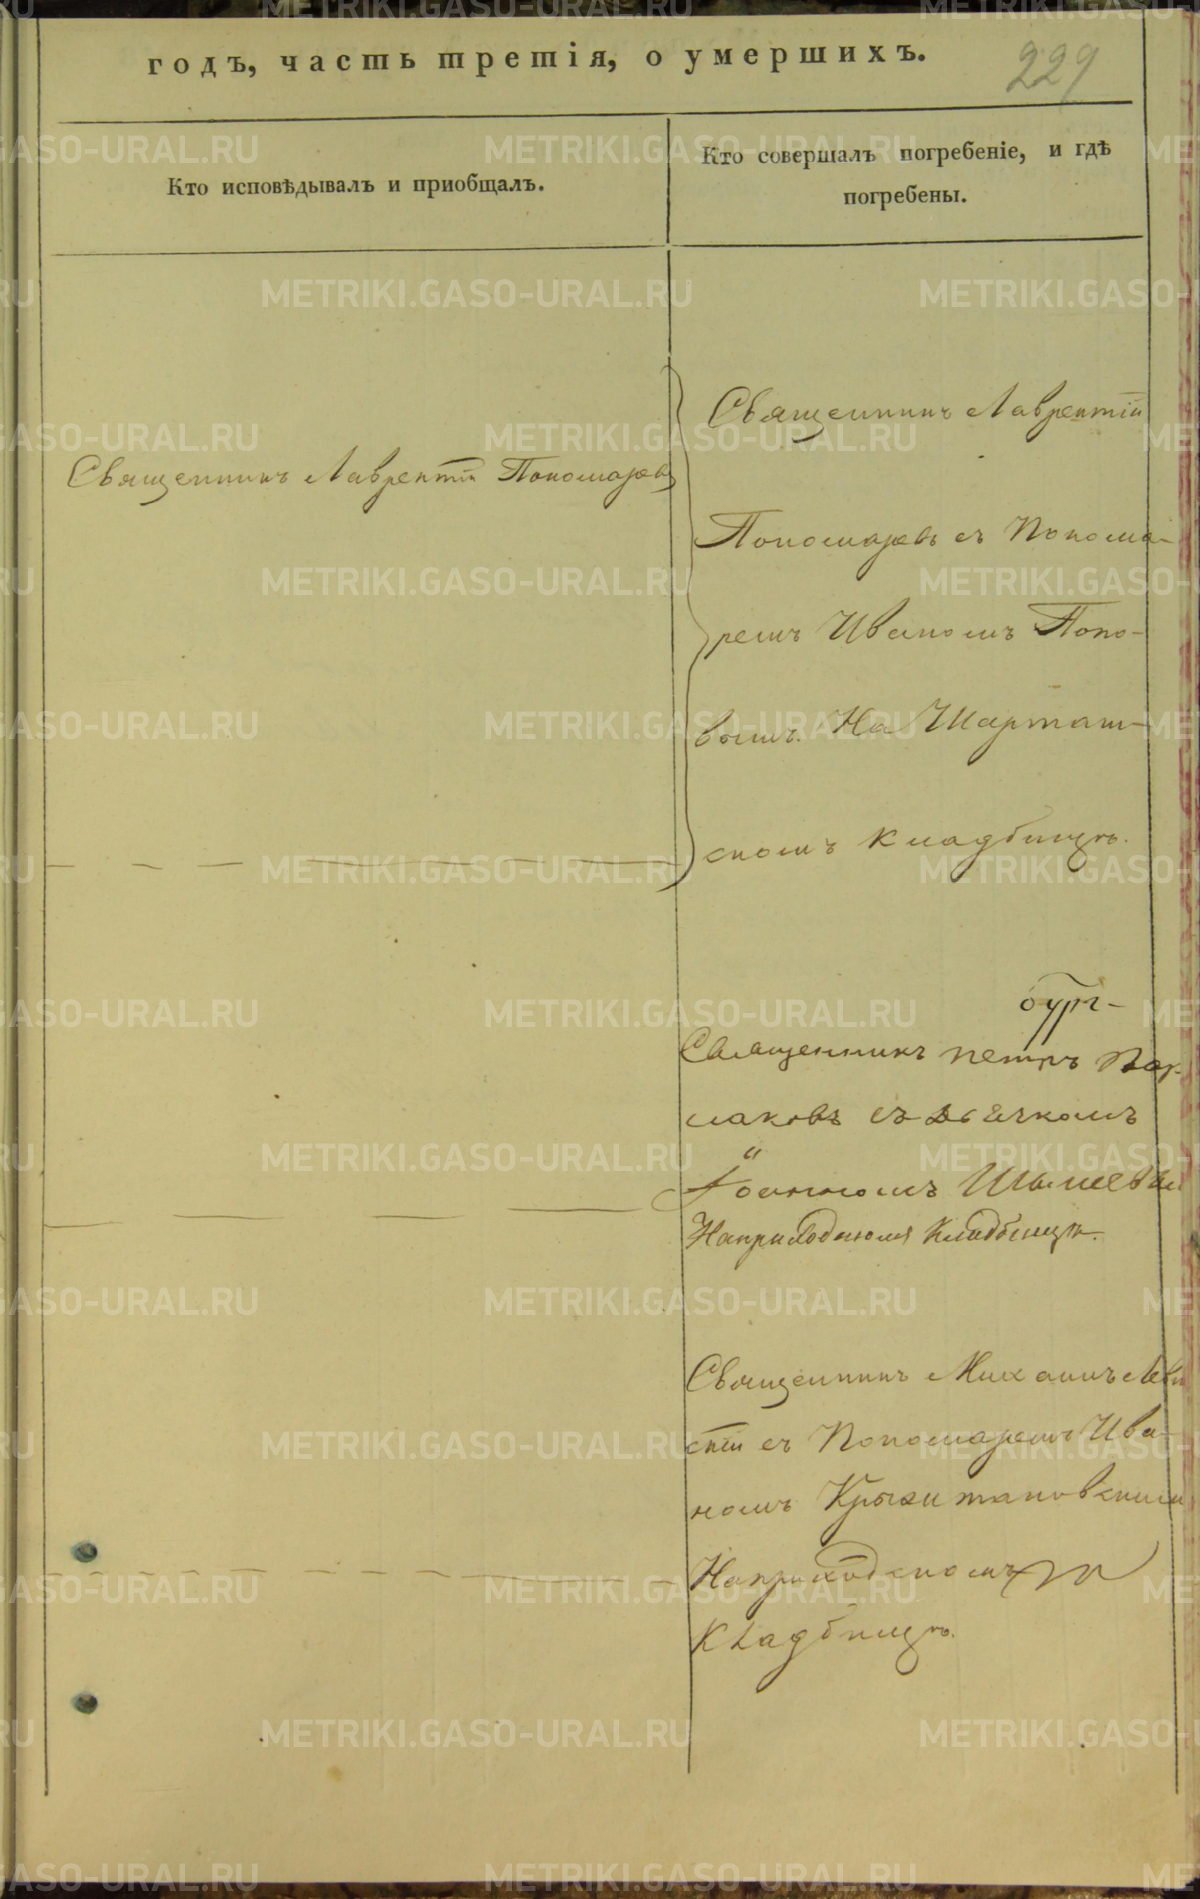 годъ, часть третія, о умершихъ.
229
Кто исповѣдывалъ и приобщалъ.
Кто совершалъ погребеніе, и гдѣ
погребены.
Священникъ Лаврентій Пономаревъ
Священникъ Лаврентій
Пономаревъ съ Понома-
ремъ Иваномъ Попо-
вымъ. На Шарташ-
скомъ кладбищѣ.
бург-
Священникъ Петръ
маковъ съ Дьячкомъ
Іоанномъ
На приходскомъ Кладбищѣ.
Священникъ Михаилъ
скій съ Пономаремъ Ива-
номъ
На приходскомъ
Кладбищѣ.
METRIKI.GASO-URAL.RU